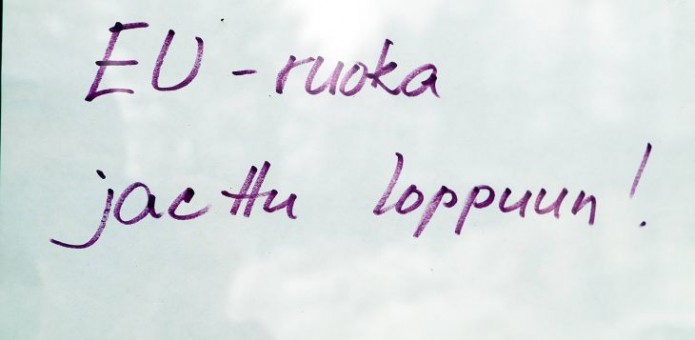 EU-ruoka
jaettu loppuun!